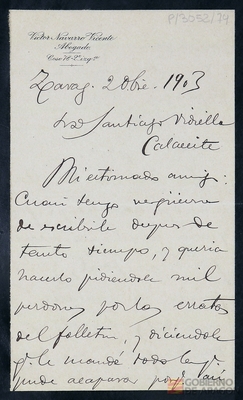 P/3052/74
Victor Navarro Vicente
Abogado
Coso
Zarag. 2 Dic. 1903
Sr D Santiago Vidiella
Calaceite
Mi estimado amigo:
Casi tengo vergüenza
de escribirle despues de
tanto tiempo, y queria
hacerlo pidiendole mil
perdones por las erratas
del folletin, y diciendole
q.e le mandé todo lo q.e
pude acaparar por
GOBIERNO
DE ARAGON